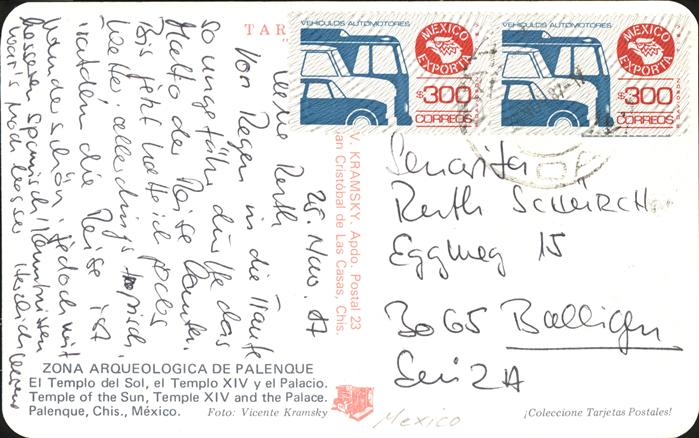 TAR
VEHICULOS AUTOMOTORES
MEXICO
EXPORTA
$300
CORREOS
VEHICULOS AUTOMOTORES
MEXICO
EXPORTA
$300
CORREOS
25. Nov. 87
Ruth
Vom Regen in die Traufe
so ungefähr dürfte das
Motto der Reise lauten.
Bis jetzt hatte ich
Wetter, allerdings tropisch.
die Reise ist
wunderschön, jedoch mit
besseren Spanisch Kenntnissen
wär's noch besser.
V. KRAMSKY. Apdo. Postal 23
San Cristóbal de Las Casas, Chis.
Senorita
Ruth SCHÜRCH
Eggweg 15
3065 Bolligen
SuiZA
ZONA ARQUEOLOGICA DE PALENQUE
El Templo del Sol, el Templo XIV y el Palacio.
Temple of the Sun, Temple XIV and the Palace.
Palenque, Chis., México.
Foto: Vicente Kramsky
Mexico
¡Coleccione Tarjetas Postales!